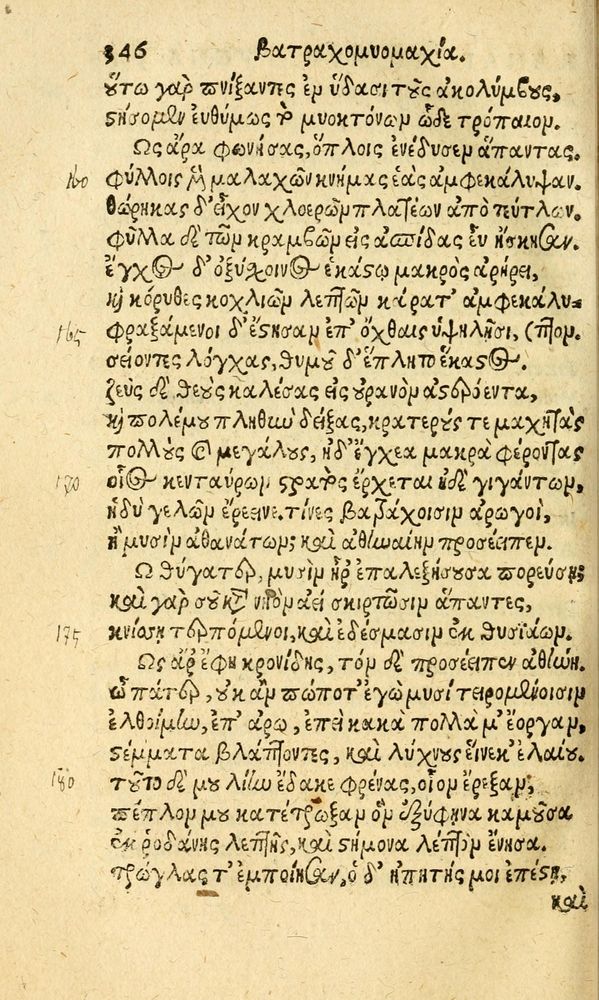 346 Βατραχομυομαχία.
οὕτω γὰρ πνίξαντες ἐν ὕδασι τοὺς ἀκολύμβους,
στήσομεν εὐθύμως τὸ μυοκτόνον ὧδε τρόπαιον.
Ὣς ἄρα φωνήσας, ὅπλοις ἐνέδυσεν ἅπαντας.
160 φύλλοις μὲν μαλαχῶν κνήμας ἑὰς ἀμφεκάλυψαν.
θώρηκας δ' εἶχον χλοερῶν πλατέων ἀπὸ τεύτλων.
φύλλα δὲ τῶν κραμβῶν εἰς ἀσπίδας εὖ ἤσκησαν.
ἔγχος δ' ὀξύσχοινος ἑκάστῳ μακρὸς ἀρήρει,
καὶ κόρυθες κοχλιῶν λεπτῶν κάρατ' ἀμφεκάλυ-
165 φραξάμενοι δ' ἔστησαν ἐπ' ὄχθαις ὑψηλῇσι, (πτον.
σείοντες λόγχας, θυμοῦ δ' ἔπλητο ἕκαστος.
Ζεὺς δὲ θεοὺς καλέσας εἰς οὐρανὸν ἀστερόεντα,
καὶ πολέμου πληθὺν δείξας, κρατερούς τε μαχητὰς
πολλοὺς καὶ μεγάλους, ἠδ' ἔγχεα μακρὰ φέροντας
170 οἷος κενταύρων στρατὸς ἔρχεται ἠὲ γιγάντων,
ἡδὺ γελῶν ἐρέεινε. τίνες βατράχοισιν ἀρωγοὶ,
ἢ μυσὶν ἀθανάτων; καὶ ἀθηναίην προσέειπεν.
Ὦ θύγατερ, μυσὶν ἦρ' ἐπαλεξήσουσα πορεύσῃ;
καὶ γὰρ σοῦ κατὰ νηὸν ἀεὶ σκιρτῶσιν ἅπαντες,
175 κνίσῃ τερπόμενοι, καὶ ἐδέσμασιν ἐκ θυσιάων.
Ὣς ἄρ' ἔφη κρονίδης, τὸν δὲ προσέειπεν ἀθήνη.
ὦ πάτερ, οὐκ ἂν πώποτ' ἐγὼ μυσὶ τειρομένοισιν
ἐλθοίμην, ἐπ' ἀρω, ἐπεὶ κακὰ πολλὰ μ' ἔοργαν,
στέμματα βλάπτοντες, καὶ λύχνους εἵνεκ' ἐλαίου.
180 τοῦτο δέ μου λίην ἔδακε φρένας, οἷον ἔρεξαν;
πέπλον μου κατέτρωξαν ὃν ἐξύφηνα καμοῦσα
ἐκ ῥοδάνης λεπτῆς, καὶ στήμονα λέπτον ἔνησα.
τρώγλας τ' ἐμποίησαν, ὁ δ' ἠπητής μοι ἐπέστη,
καὶ